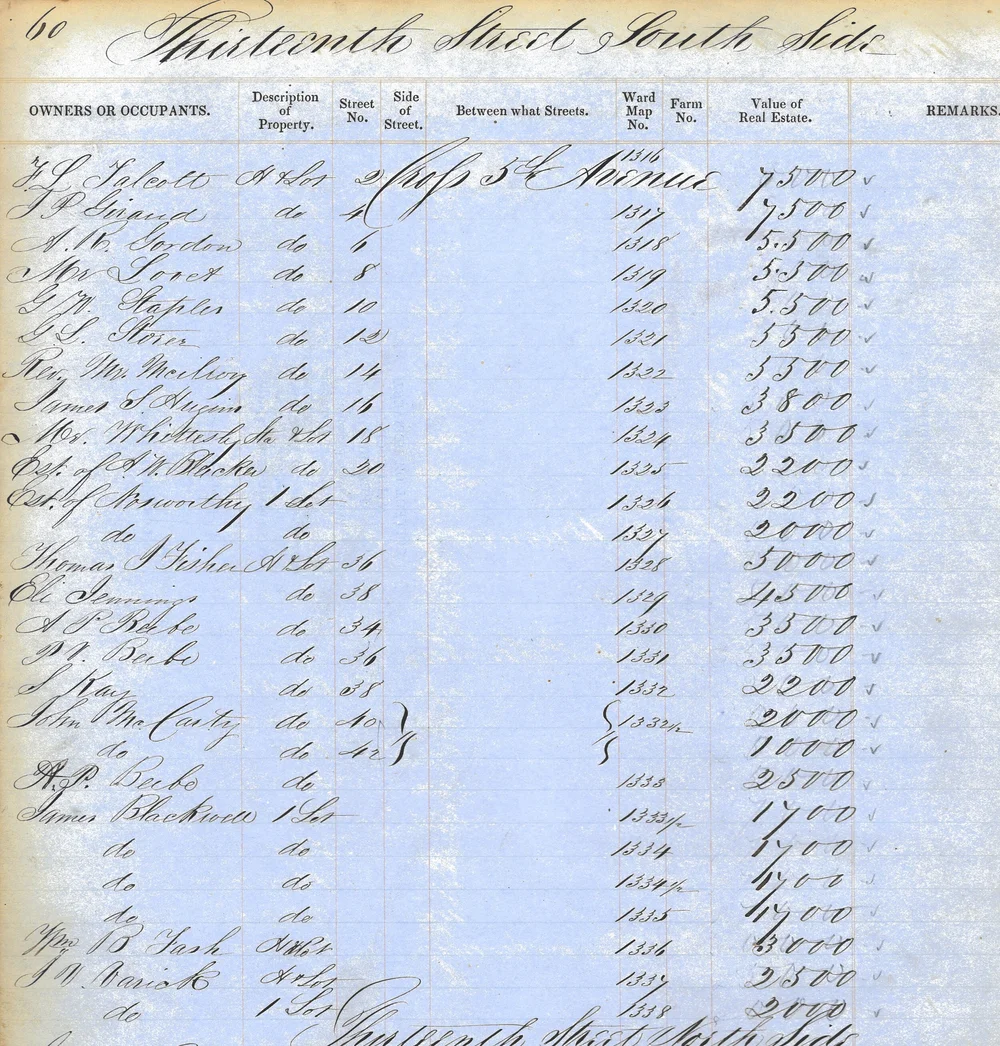 60 Thirteenth Street South Side
OWNERS OR OCCUPANTS. Description of Property. Street No. Side of Street. Between what Streets. Ward Map No. Farm No. Value of Real Estate. REMARKS.
F. L. Talcott H & Lot 2 Cross 5th Avenue 1316 7500
J P Giraud do 4 1317 7500
A. R. Gordon do 6 1318 5.500
Mr Lovet do 8 1319 5.500
G. W. Staples do 10 1320 5.500
G L. Storer do 12 1321 5500
Rev Mr. Mcilroy do 14 1322 5500
James S. Huggins do 16 1323 3800
Mr. Whittlesly Sta & Lot 18 1324 3500
Est. of A. W. Blacker do 20 1325 2200
Est. of Nosworthy 1 Lot 1326 2200
do do 1327 2000
Thomas J Fisher H & Lot 36 1328 5000
Eli Jennings do 38 1329 4500
A P Beebe do 34 1330 3500
P. V. Beebe do 36 1331 3500
S Kay do 38 1332 2200
John Mc Carty do 40 1332 1/2 2000
do do 42 1000
A. P. Beebe do 1333 2500
James Blackwell 1 Lot 1333 1/2 1700
do do 1334 1700
do do 1334 1/2 1700
do do 1335 1700
Wm B Tash H & Lot 1336 3000
J W. Varick H & Lot 1337 2500
do 1 Lot 1338 2000
Thirteenth Street North Side